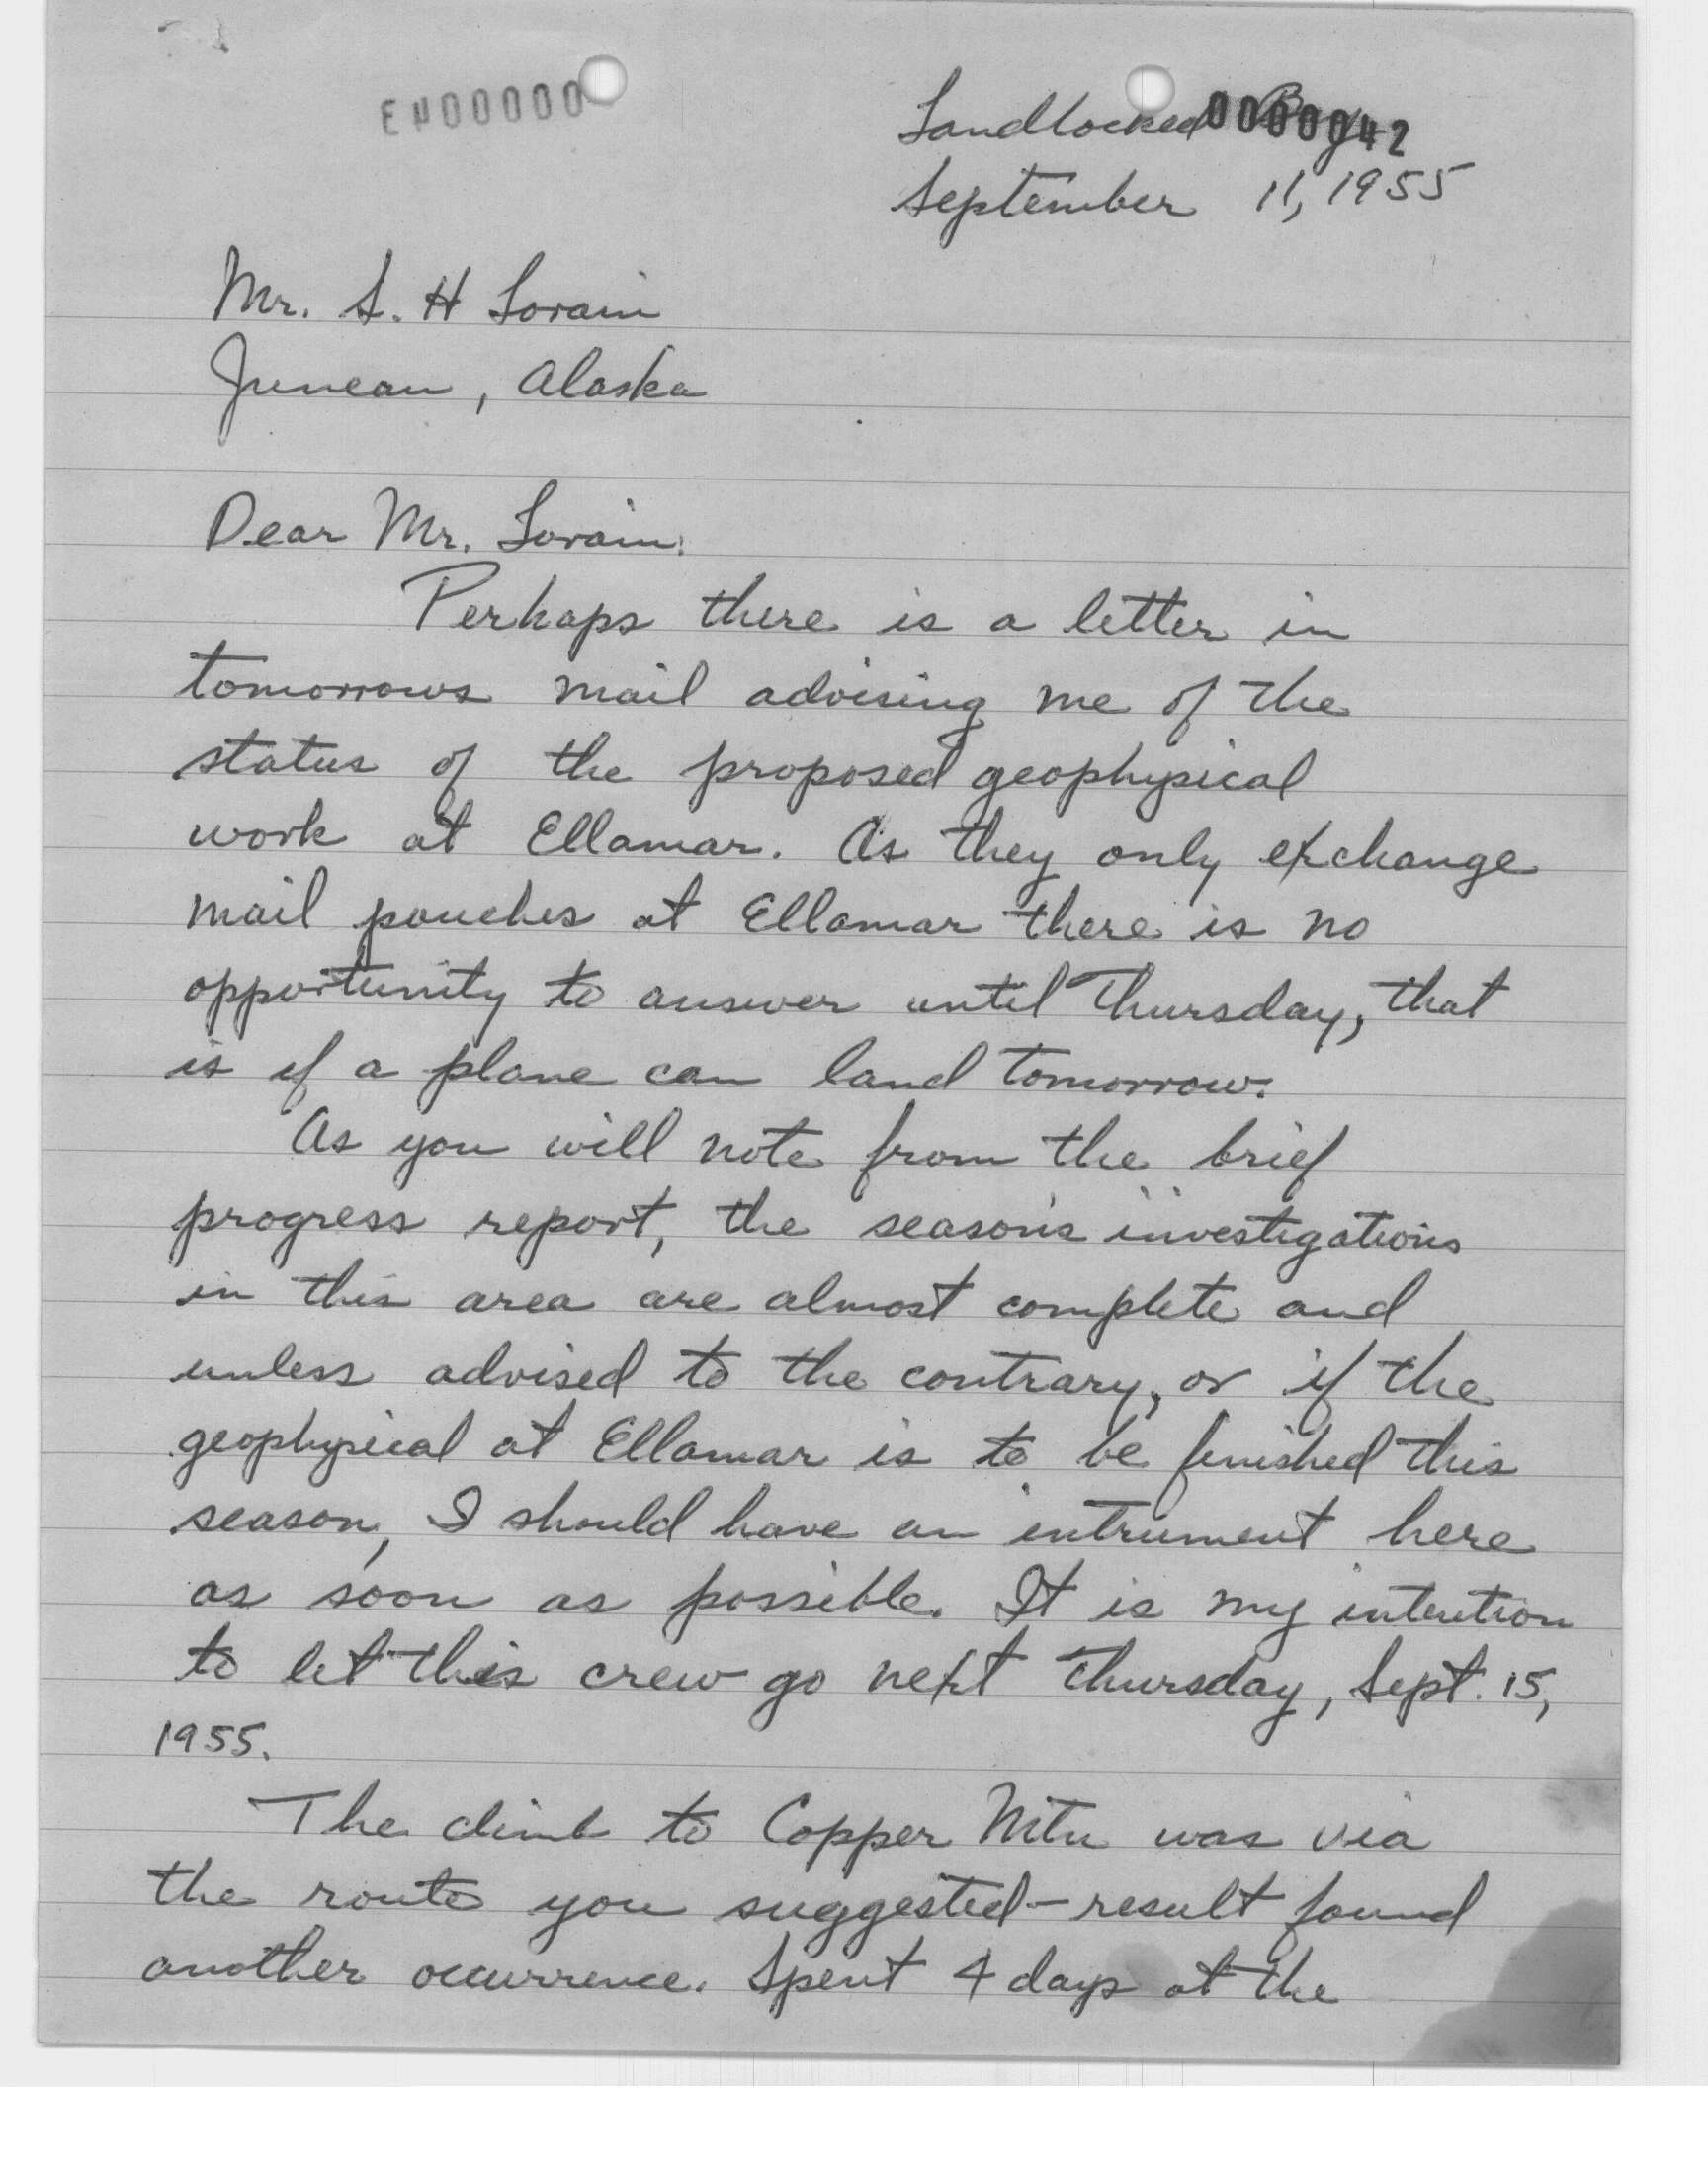 EH00000
Landlocked Bay
0000042
September 11, 1955
Mr. S. H Lorain
Juneau, Alaska
Dear Mr. Lorain:
Perhaps there is a letter in
tomorrows mail advising me of the
status of the proposed geophysical
work at Ellamar. As they only exchange
mail pouches at Ellamar there is no
opportunity to answer until Thursday, that
is if a plane can land tomorrow.
As you will note from the brief
progress report, the season's investigations
in this area are almost complete and
unless advised to the contrary, or if the
geophysical at Ellamar is to be finished this
season, I should have an intrument here
as soon as possible. It is my intention
to let this crew go next Thursday, Sept. 15,
1955.
The climb to Copper Mtn was via
the route you suggested - result found
another occurrence. Spent 4 days at the